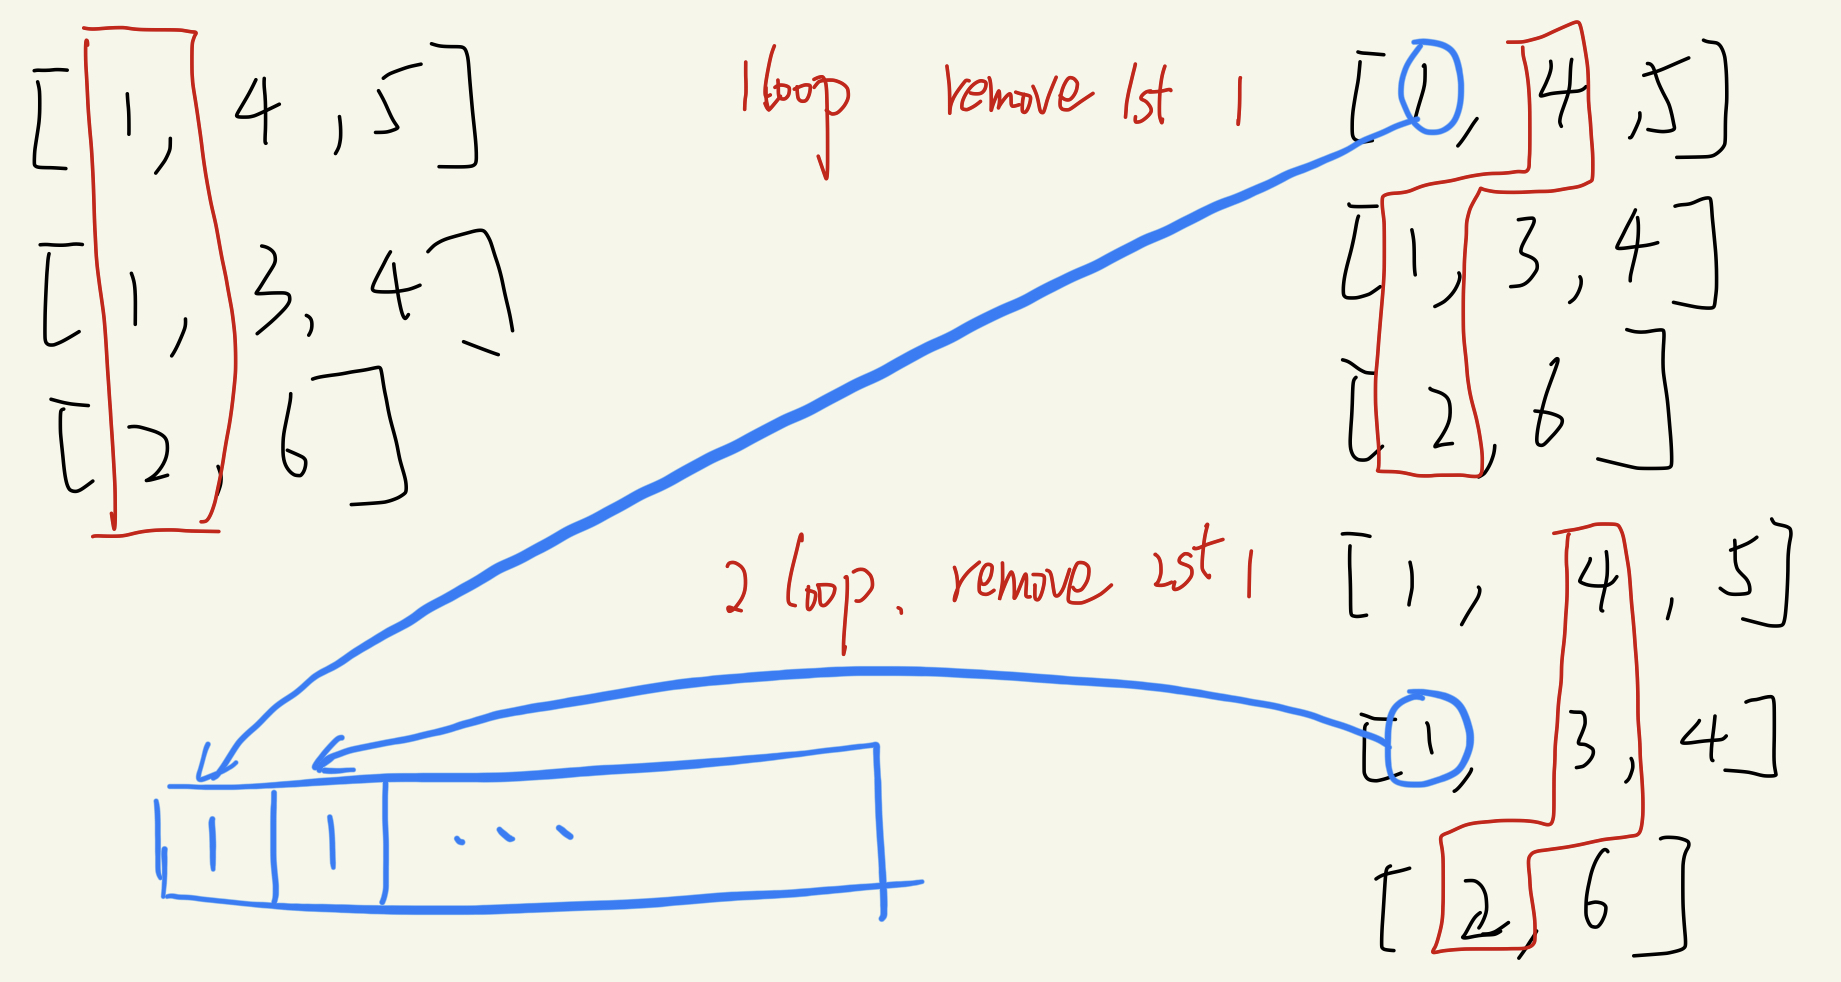 [1, 4, 5]
[1, 3, 4]
[2, 6]
1 loop remove 1st 1
[1, 4, 5]
[1, 3, 4]
[2, 6]
2 loop. remove 2st 1
[1, 4, 5]
[1, 3, 4]
[2, 6]
1 1 ...